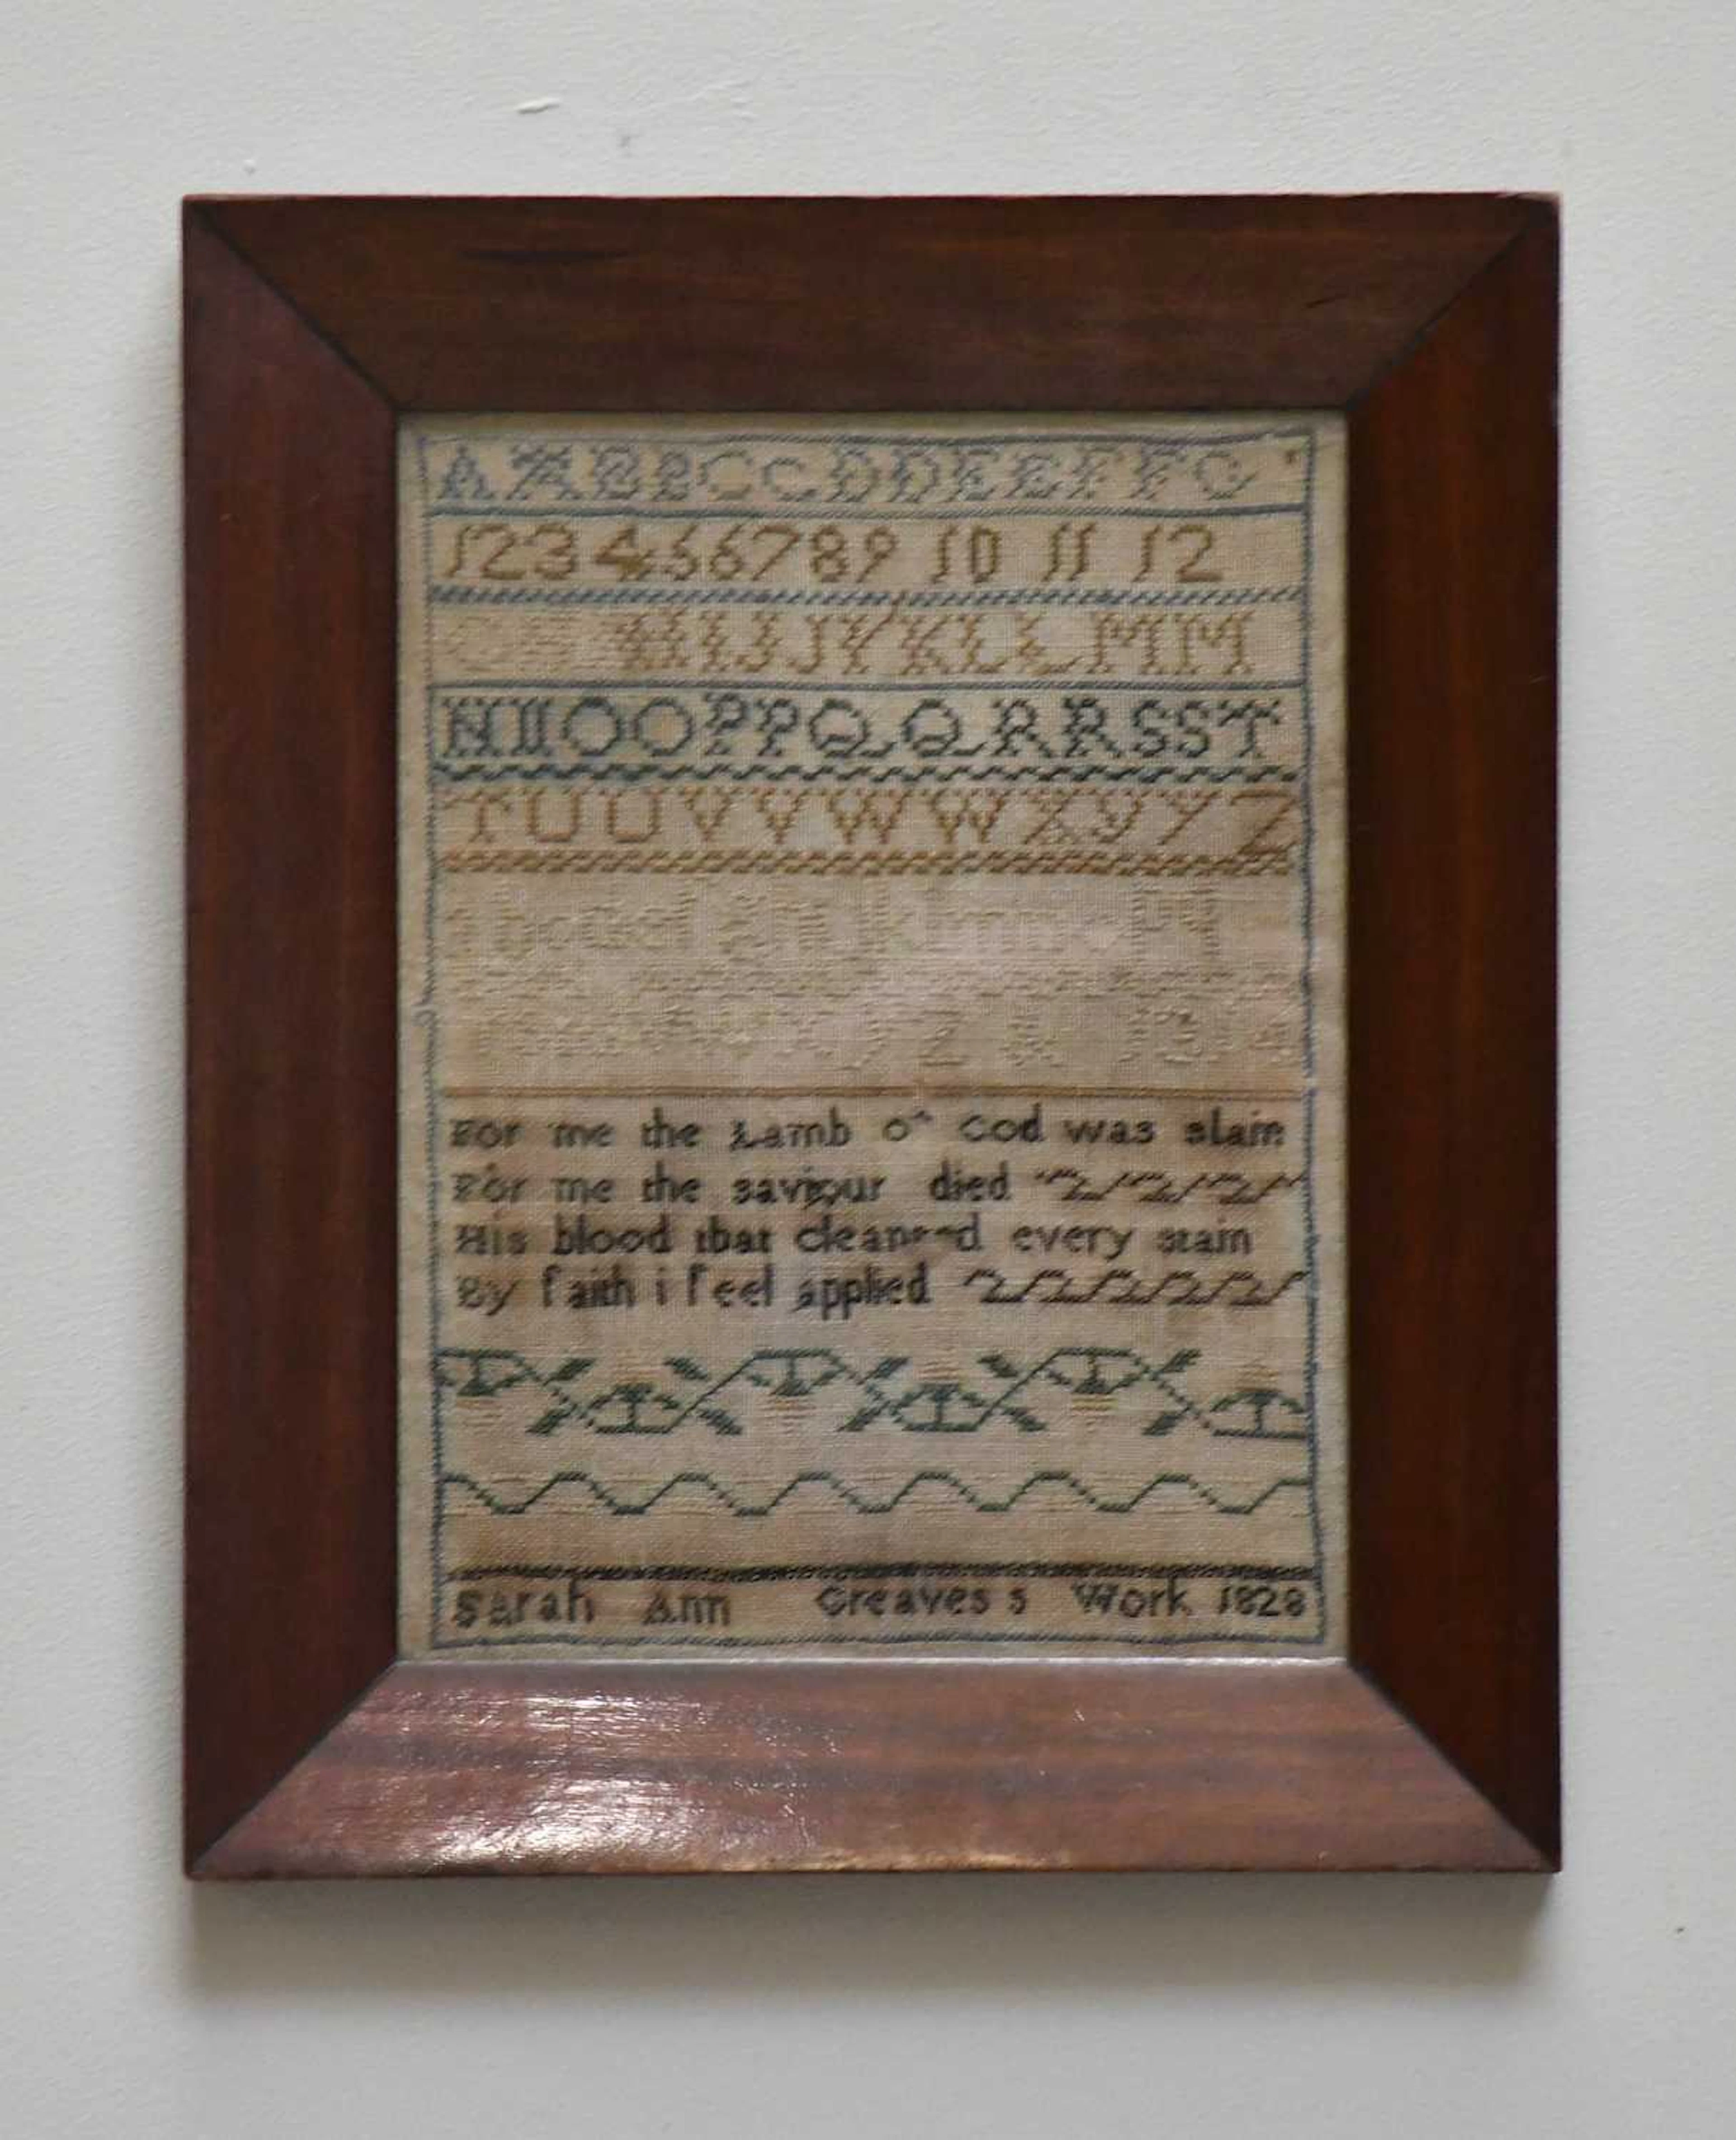 A A B B C C D D E E F F G
1 2 3 4 5 6 7 8 9 10 11 12
G H I J J K K L L M M
N N O O P P Q Q R R S S T
T U U V V W W X Y Y Z
For me the Lamb of God was slain
For me the saviour died
His blood that cleansed every stain
By faith i feel applied
Sarah Ann Greaves s Work 1828